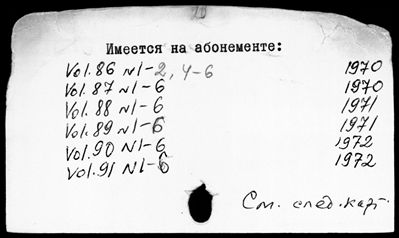 Имеется на абонементе:
Vol. 86 N1-2, 4-6 1970
Vol. 87 N1-6 1970
Vol. 88 N1-6 1971
Vol. 89 N1-6 1971
Vol. 90 N1-6 1972
Vol. 91 N1-6 1972
См. след. карт.